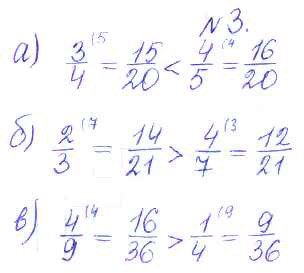 №3.
а) 3/4 (5 = 15/20 < 4/5 (4 = 16/20
б) 2/3 (7 = 14/21 > 4/7 (3 = 12/21
в) 4/9 (4 = 16/36 > 1/4 (9 = 9/36